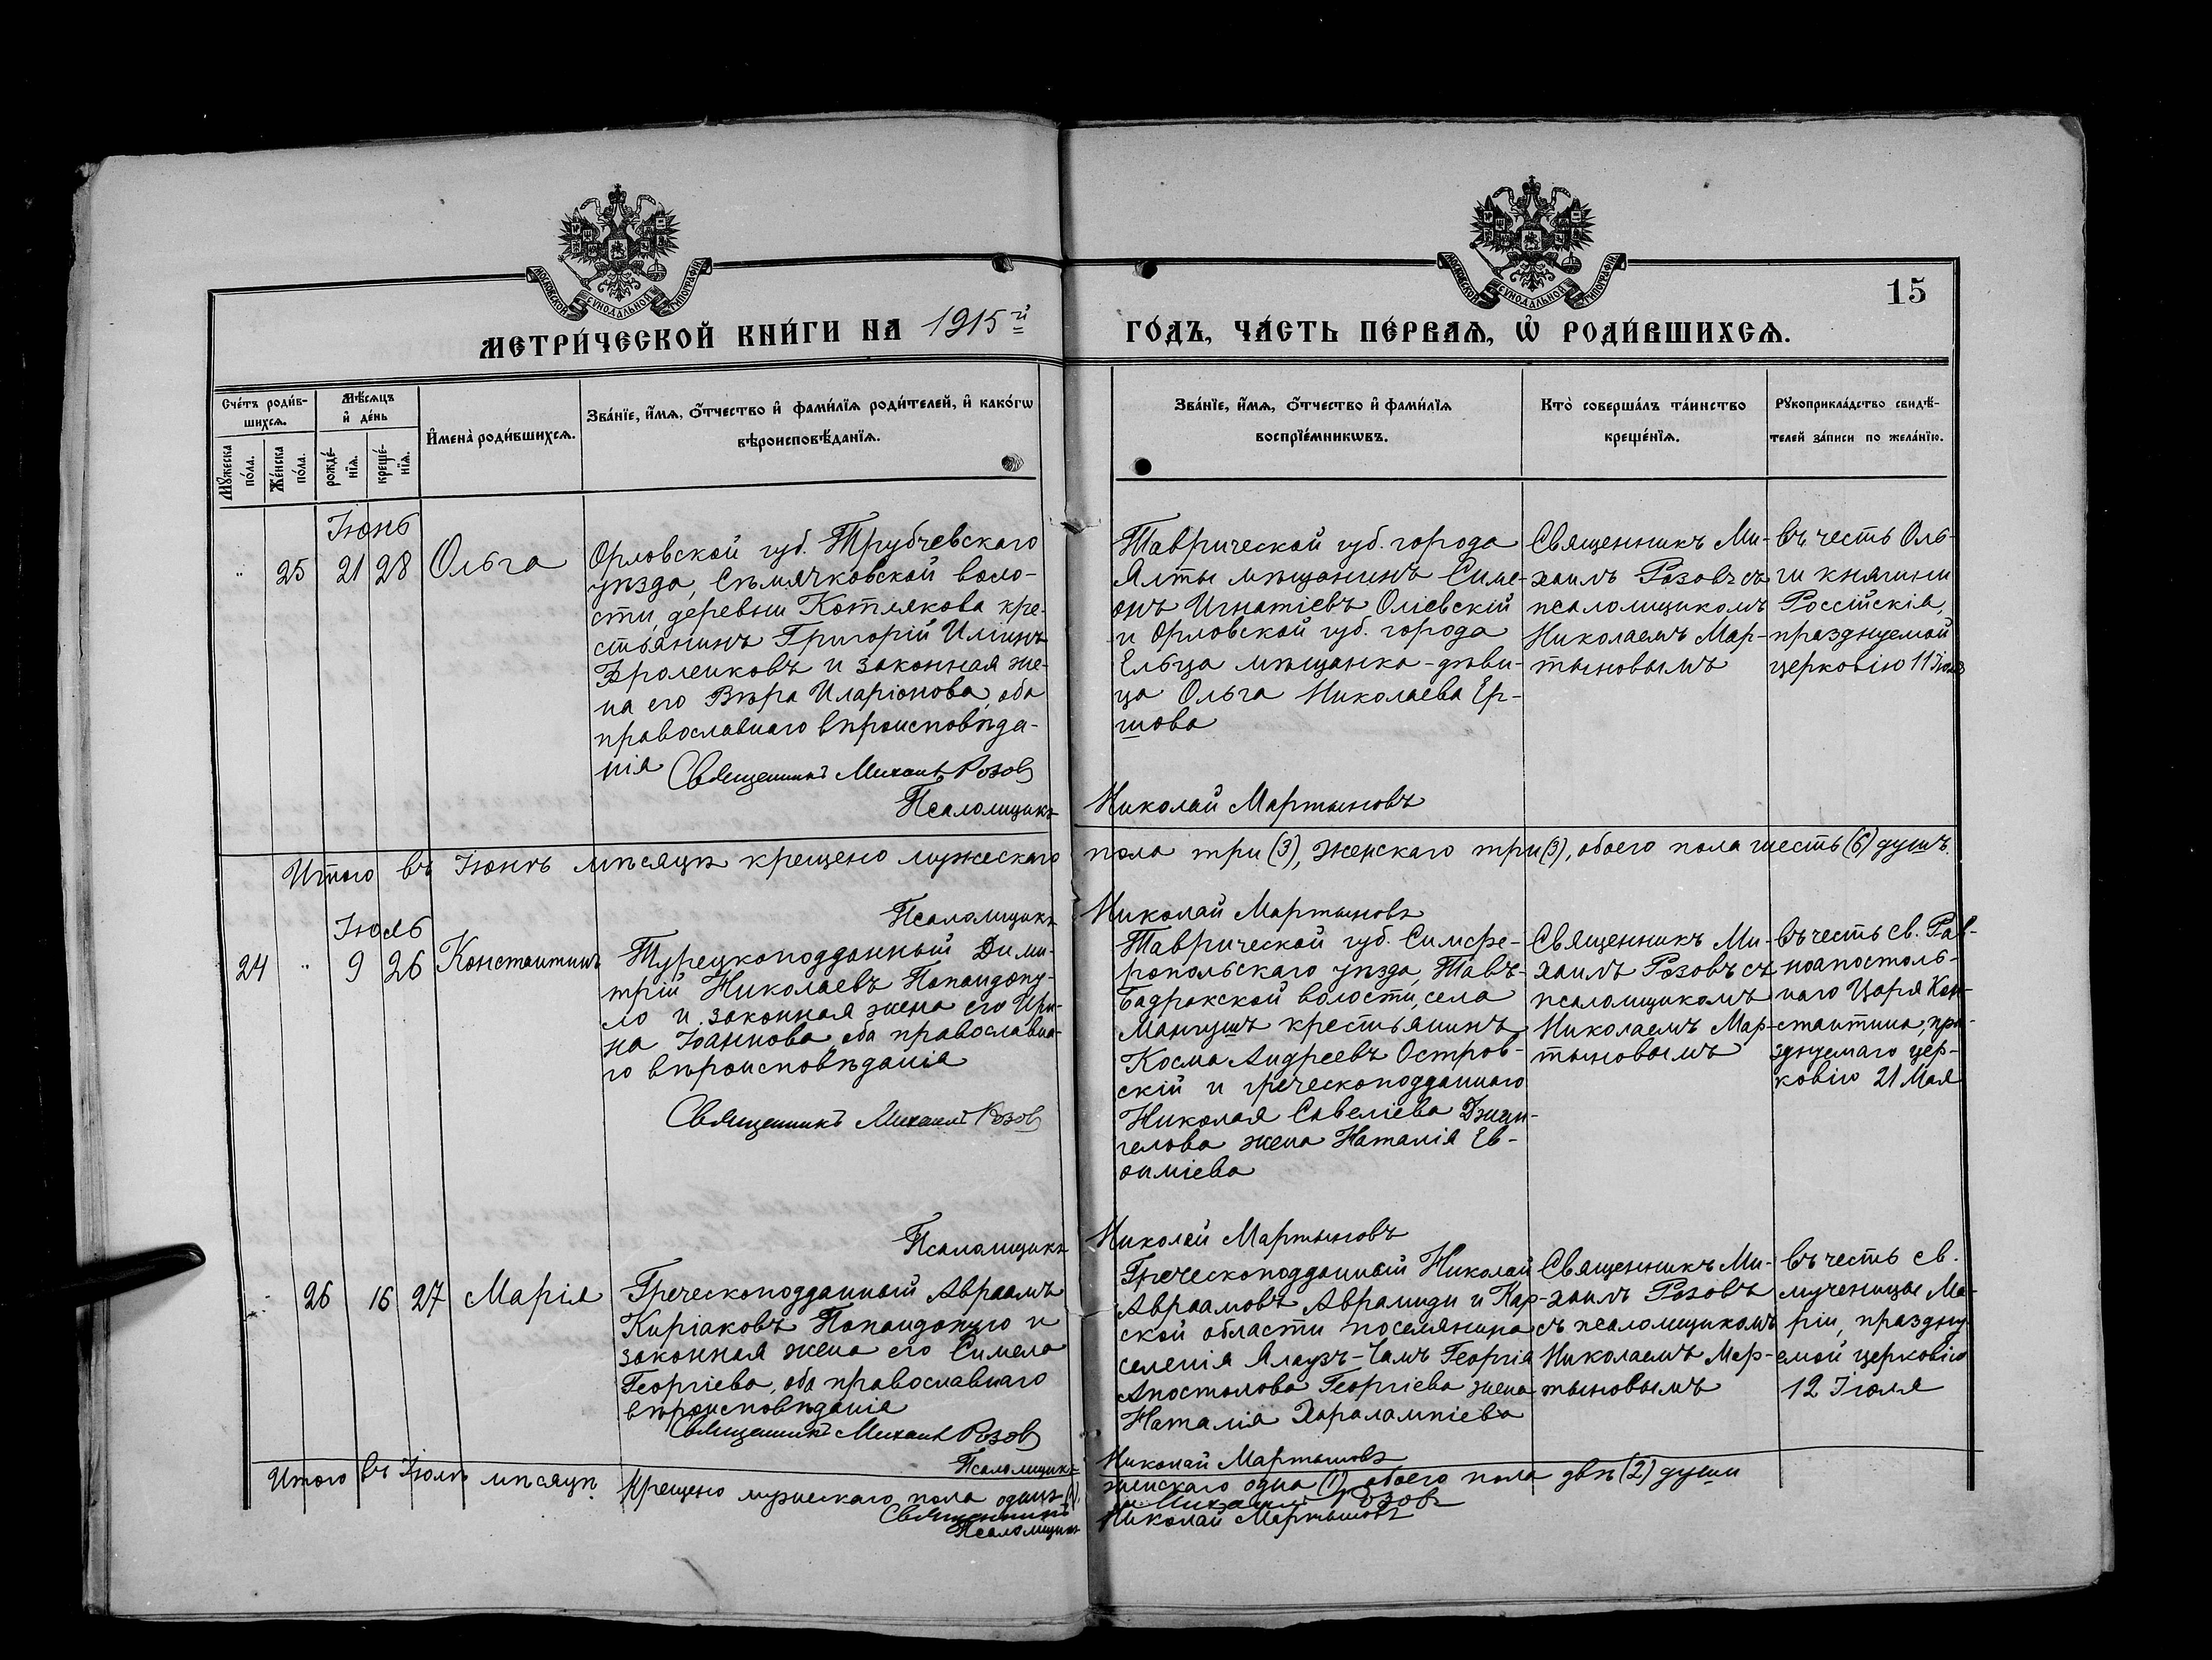 МОСКОВСКОЙ СѴНОДАЛЬНОЙ ТИПОГРАФІИ
МЕТРИ́ЧЕСКОЙ КНИ́ГИ НА 1915й
МОСКОВСКОЙ СѴНОДАЛЬНОЙ ТИПОГРАФІИ
15
ГО́ДЪ, ЧА́СТЬ ПЕ́РВАѦ, Ѡ РОДИ́ВШИХСѦ.
Сче́тъ роди́в-
шихсѧ.
Мꙋ́жеска по́ла.
Же́нска по́ла.
Мѣ́сѧцъ
и де́нь
рожде́-
нїѧ.
креще́-
нїѧ.
Имена̀ роди́вшихсѧ.
Зва́нїе, и́мѧ, ѻ́тчество и фами́лїѧ роди́телей, и како́гѡ
вѣроисповѣ́данїѧ.
Зва́нїе, и́мѧ, ѻ́тчество и фами́лїѧ
воспрїе́мникѡвъ.
Кто̀ соверша́лъ та́инство
креще́нїѧ.
Рꙋкоприкла́дство свидѣ́-
телей за́писи по жела́нїю.
Іюнь
" 25 21 28 Ольга
Орловской губ. Трубчевскаго
уѣзда, Сѣмячковской воло-
сти, деревни Котлякова кре-
стьянинъ Григорій Иліинъ
Фроленковъ и законная же-
на его Вѣра Иларіонова, оба
православнаго вѣроисповѣда-
нія
Священникъ Михаилъ Розовъ
Таврической губ. города
Ялты мѣщанинъ Симе-
онъ Игнатіевъ Оліевскій
и Орловской губ. города
Ельца мѣщанка-дѣви-
ца Ольга Николаева Ер-
шова
Священникъ Ми-
хаилъ Розовъ съ
псаломщикомъ
Николаемъ Мар-
тыновымъ
въ честь Оль-
ги княгини
Россійскія,
празднуемой
церковію 11 Іюля
Псаломщикъ Николай Мартыновъ
Итого въ Іюнѣ мѣсяцѣ крещено мужескаго пола три (3), женскаго три (3), обоего пола шесть (6) душъ.
Псаломщикъ Николай Мартыновъ
Іюль
24 " 9 26 Константинъ
Турецкоподданный Дими-
трій Николаевъ Попандопу-
ло и законная жена его Ири-
на Іоаннова, оба православна-
го вѣроисповѣданія
Священникъ Михаилъ Розовъ
Таврической губ. Симфе-
ропольскаго уѣзда, Тавъ-
Бадракской волости, села
Мангушъ крестьянинъ
Косма Андреевъ Остров-
скій и греческоподданнаго
Николая Савеліева
жена Наталія Ев-
ѳиміева
Священникъ Ми-
хаилъ Розовъ съ
псаломщикомъ
Николаемъ Мар-
тыновымъ
въ честь св. Рав-
ноапостоль-
наго Царя Кон-
стантина, пра-
зднуемаго цер-
ковію 21 Мая
Псаломщикъ Николай Мартыновъ
" 26 16 27 Марія
Греческоподданный Авраамъ
Киріаковъ Попандопуло и
законная жена его Симела
Георгіева, оба православнаго
вѣроисповѣданія
Священникъ Михаилъ Розовъ
Греческоподданный Николай
Авраамовъ Аврамиди и Кар-
ской области поселянина
селенія Ялаузъ-Чамъ Георгія
Апостолова Георгіева жена
Наталія Харалампіева
Священникъ Ми-
хаилъ Розовъ
съ псаломщикомъ
Николаемъ Мар-
тыновымъ
въ честь св.
мученицы Ма-
ріи, праздну-
емой церковію
12 Іюля
Псаломщикъ Николай Мартыновъ
Итого въ Іюлѣ мѣсяцѣ крещено мужескаго пола одинъ (1), женскаго одна (1), обоего пола двѣ (2) души
Священникъ Михаилъ Розовъ
Псаломщикъ Николай Мартыновъ